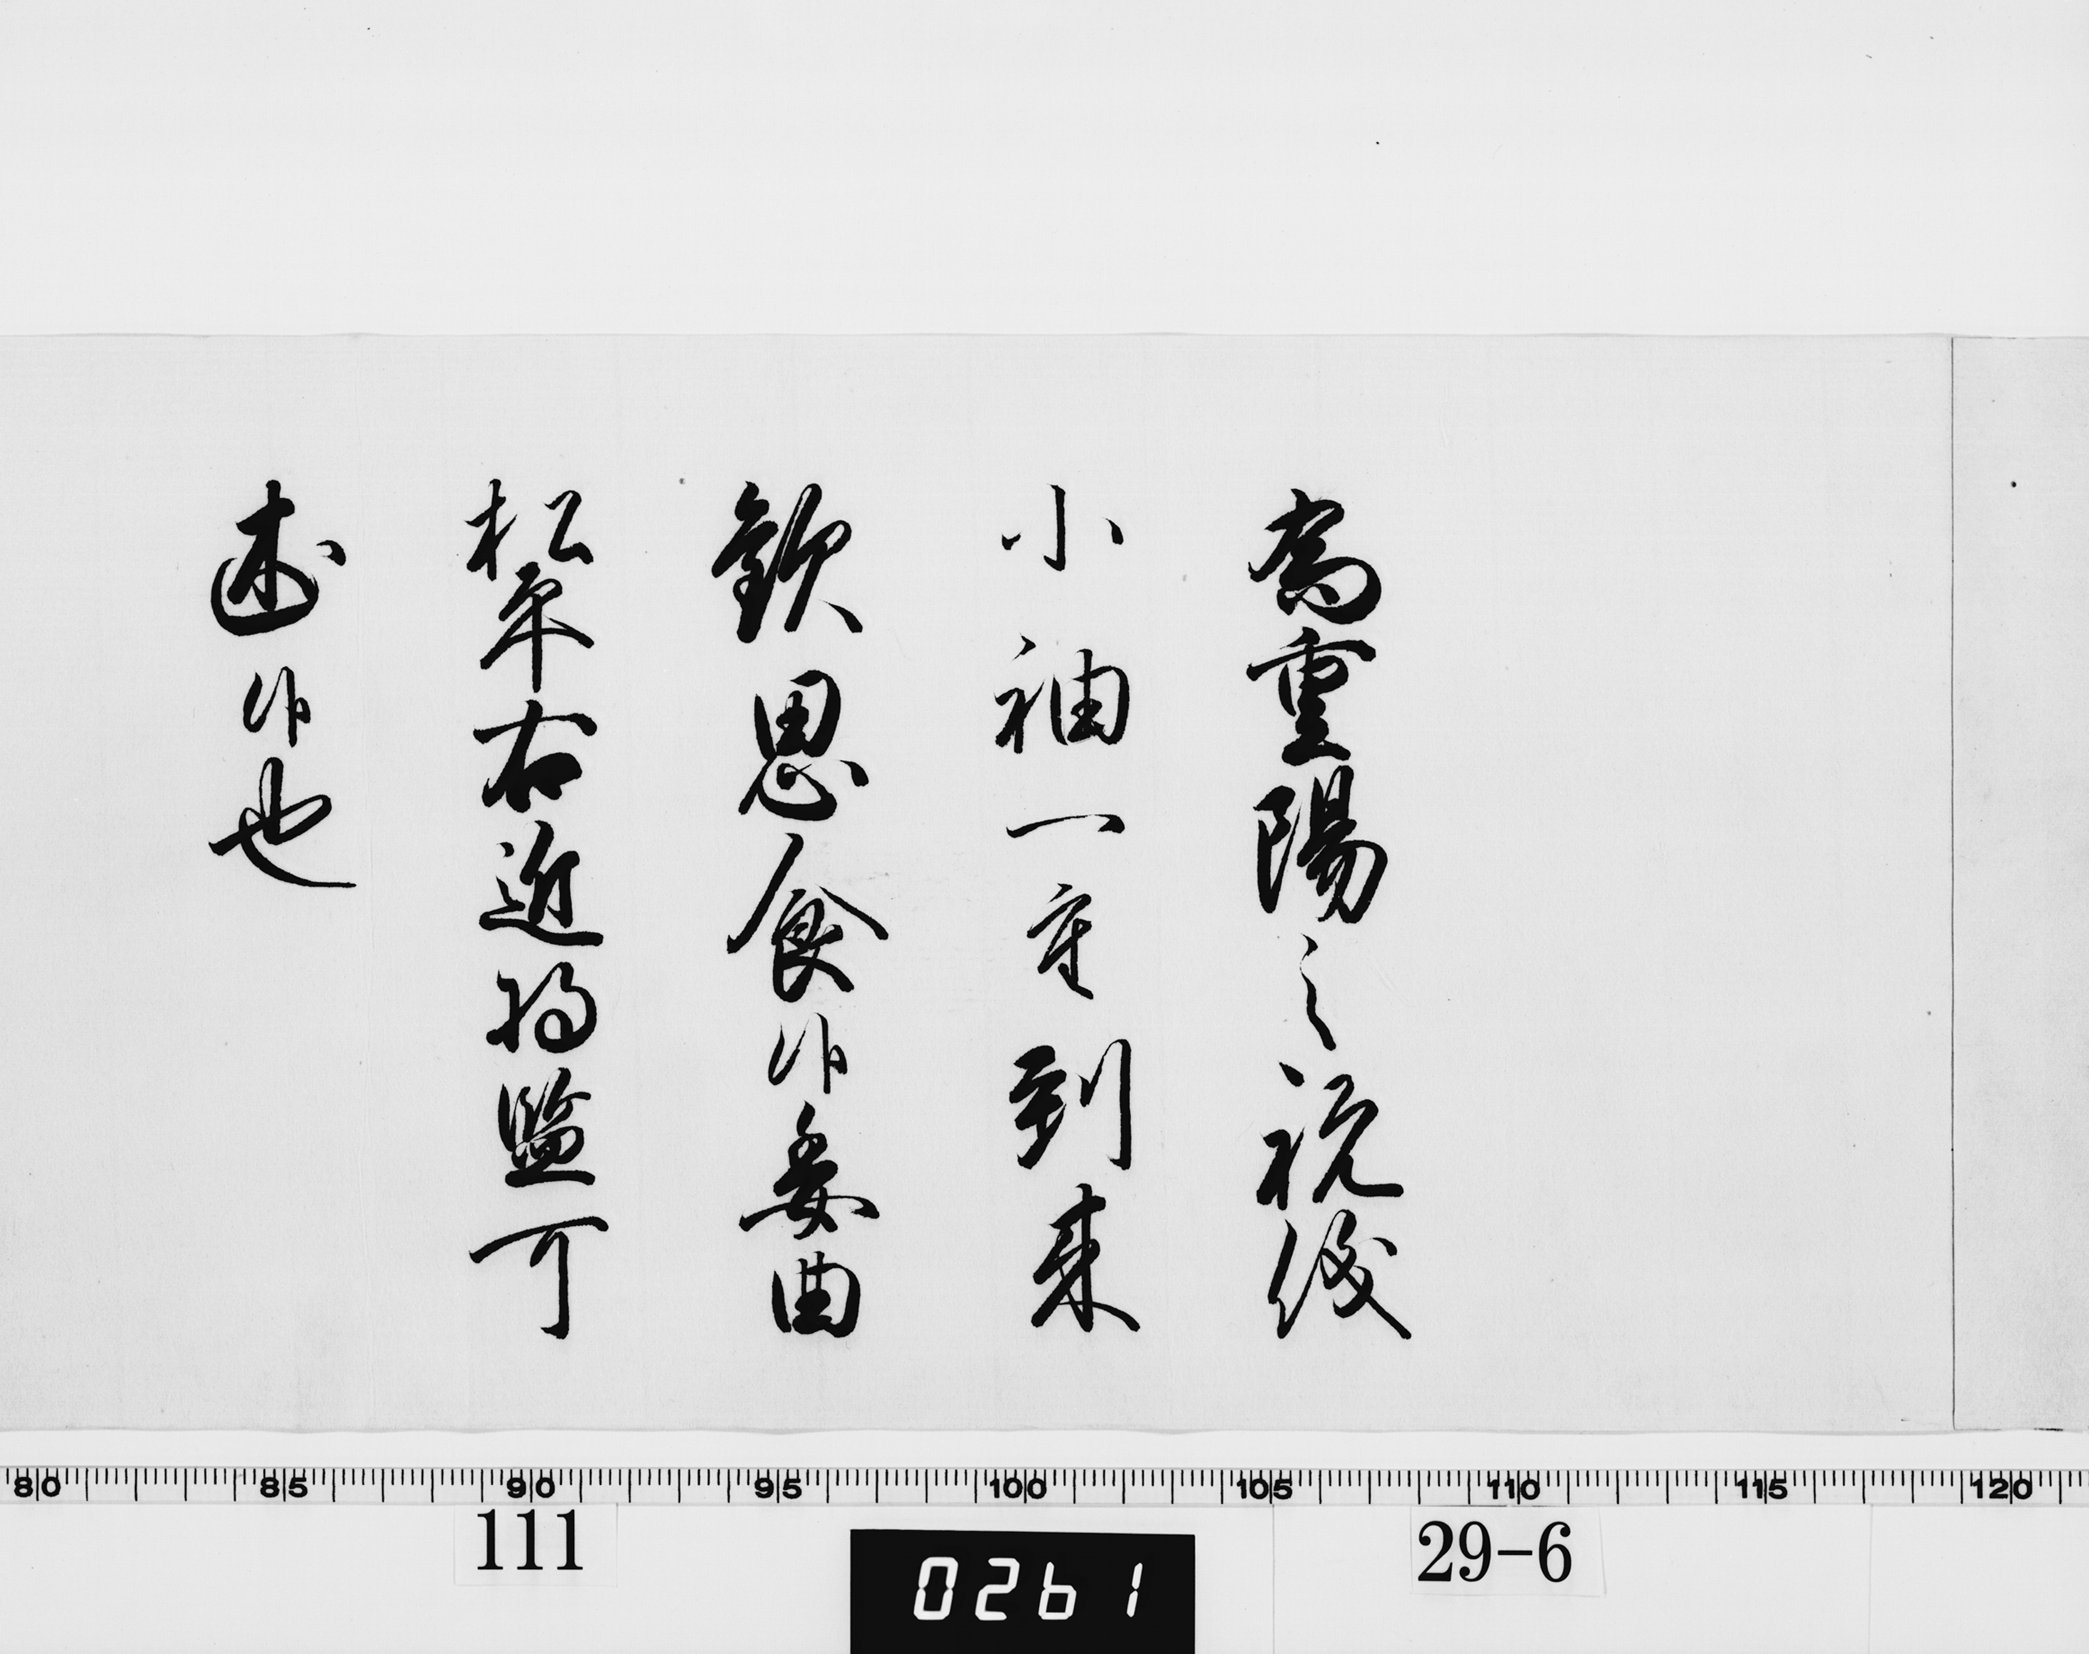 為重陽之祝儀
小袖一重到来
歓思食候委曲
松平右近将監可
述候也
80 85 90 95 100 105 110 115 120
111
0261
29-6